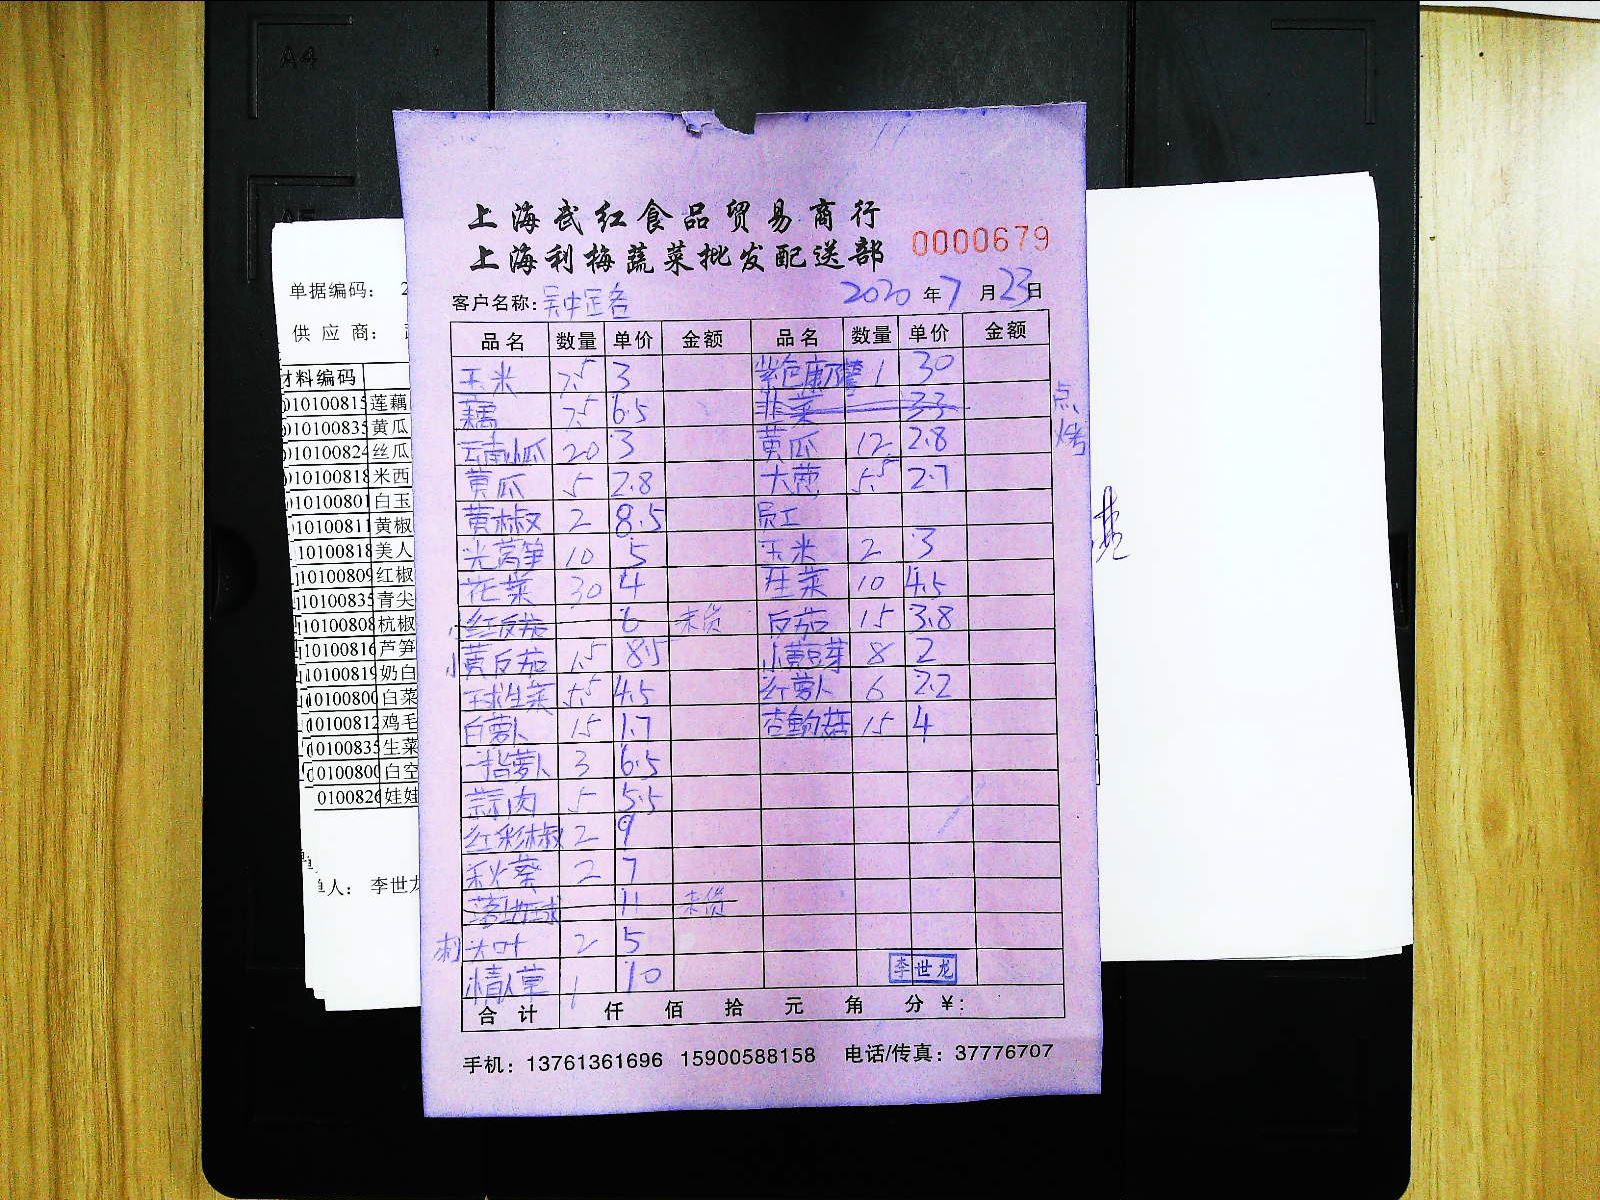 A4
A5
上海武红食品贸易商行
上海利梅蔬菜批发配送部
0000679
客户名称: 2020年7月23日
品名 数量 单价 金额 品名 数量 单价 金额
玉米 7.5 3 紫色康乃馨 1 30
藕 7.5 6.5 韭菜 33
云南小瓜 20 3 黄瓜 12 2.8
黄瓜 5 2.8 大葱 5.5 2.7
黄椒 2 8.5 员工
光莴笋 10 5 玉米 2 3
花菜 30 4 生菜 10 4.5
小红反茄 6 未货 反茄 15 3.8
小黄反茄 1.5 8.5 小黄豆芽 8 2
球生菜 5.5 4.5 红萝卜 6 2.2
白萝卜 15 1.7 杏鲍菇 15 4
一指萝卜 3 6.5
蒜肉 5 5.5
红彩椒 2 9
秋葵 2 7
11 未货
刺大叶 2 5
情人草 1 10
李世龙
合计 仟 佰 拾 元 角 分 ¥:
手机: 13761361696 15900588158 电话/传真: 37776707
点烤
单据编码: 2
供应商:
材料编码
010100815 莲藕
010100835 黄瓜
010100824 丝瓜
010100818 米西
010100801 白玉
10100811 黄椒
10100818 美人
10100809 红椒
10100835 青尖
10100808 杭椒
10100816 芦笋
10100819 奶白
10100800 白菜
10100812 鸡毛
10100835 生菜
0100800 白空
0100826 娃娃
单人: 李世龙